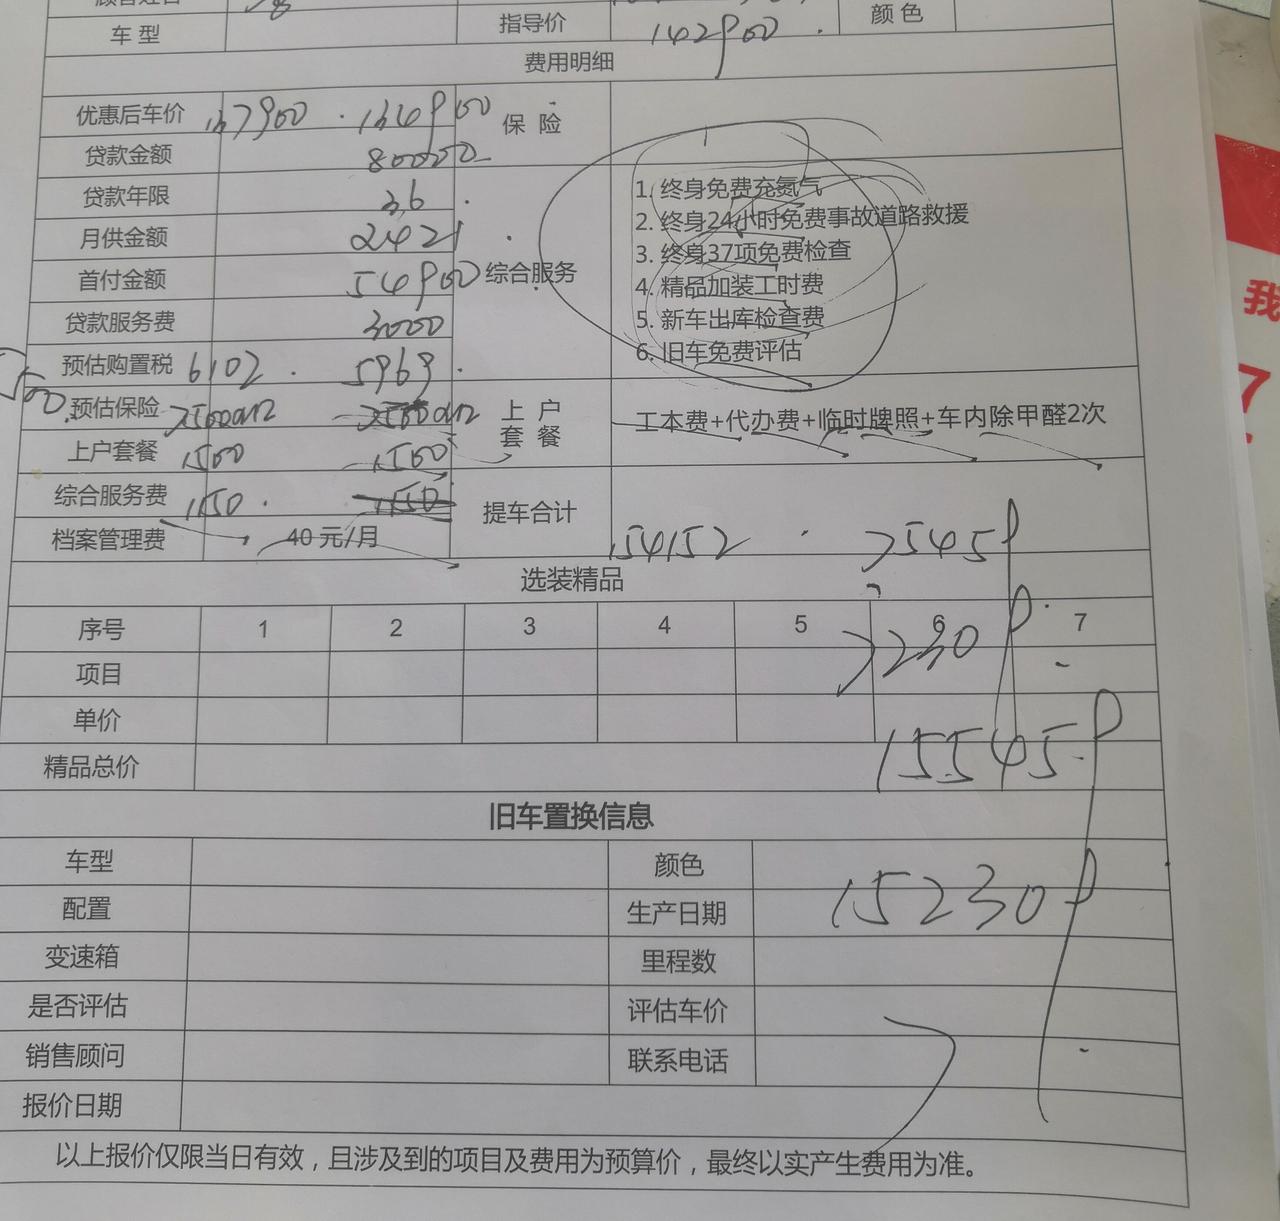 顾客姓名
车型 指导价 142900 颜色
费用明细
优惠后车价 137900 . 134900 保险
贷款金额 80000
贷款年限 36
月供金额 2421
首付金额 54900 综合服务
1. 终身免费充氮气
2. 终身24小时免费事故道路救援
3. 终身37项免费检查
4. 精品加装工时费
5. 新车出库检查费
6. 旧车免费评估
贷款服务费 3000
预估购置税 6102 . 5969
预估保险
上户套餐 1500 1500 上户套餐 工本费+代办费+临时牌照+车内除甲醛2次
综合服务费 1150 . 1150 提车合计 154152
档案管理费 40元/月
选装精品
序号 1 2 3 4 5 6 7
项目
单价
精品总价
155459
旧车置换信息
车型 颜色
配置 生产日期
152309
变速箱 里程数
是否评估 评估车价
销售顾问 联系电话
报价日期
以上报价仅限当日有效，且涉及到的项目及费用为预算价，最终以实产生费用为准。